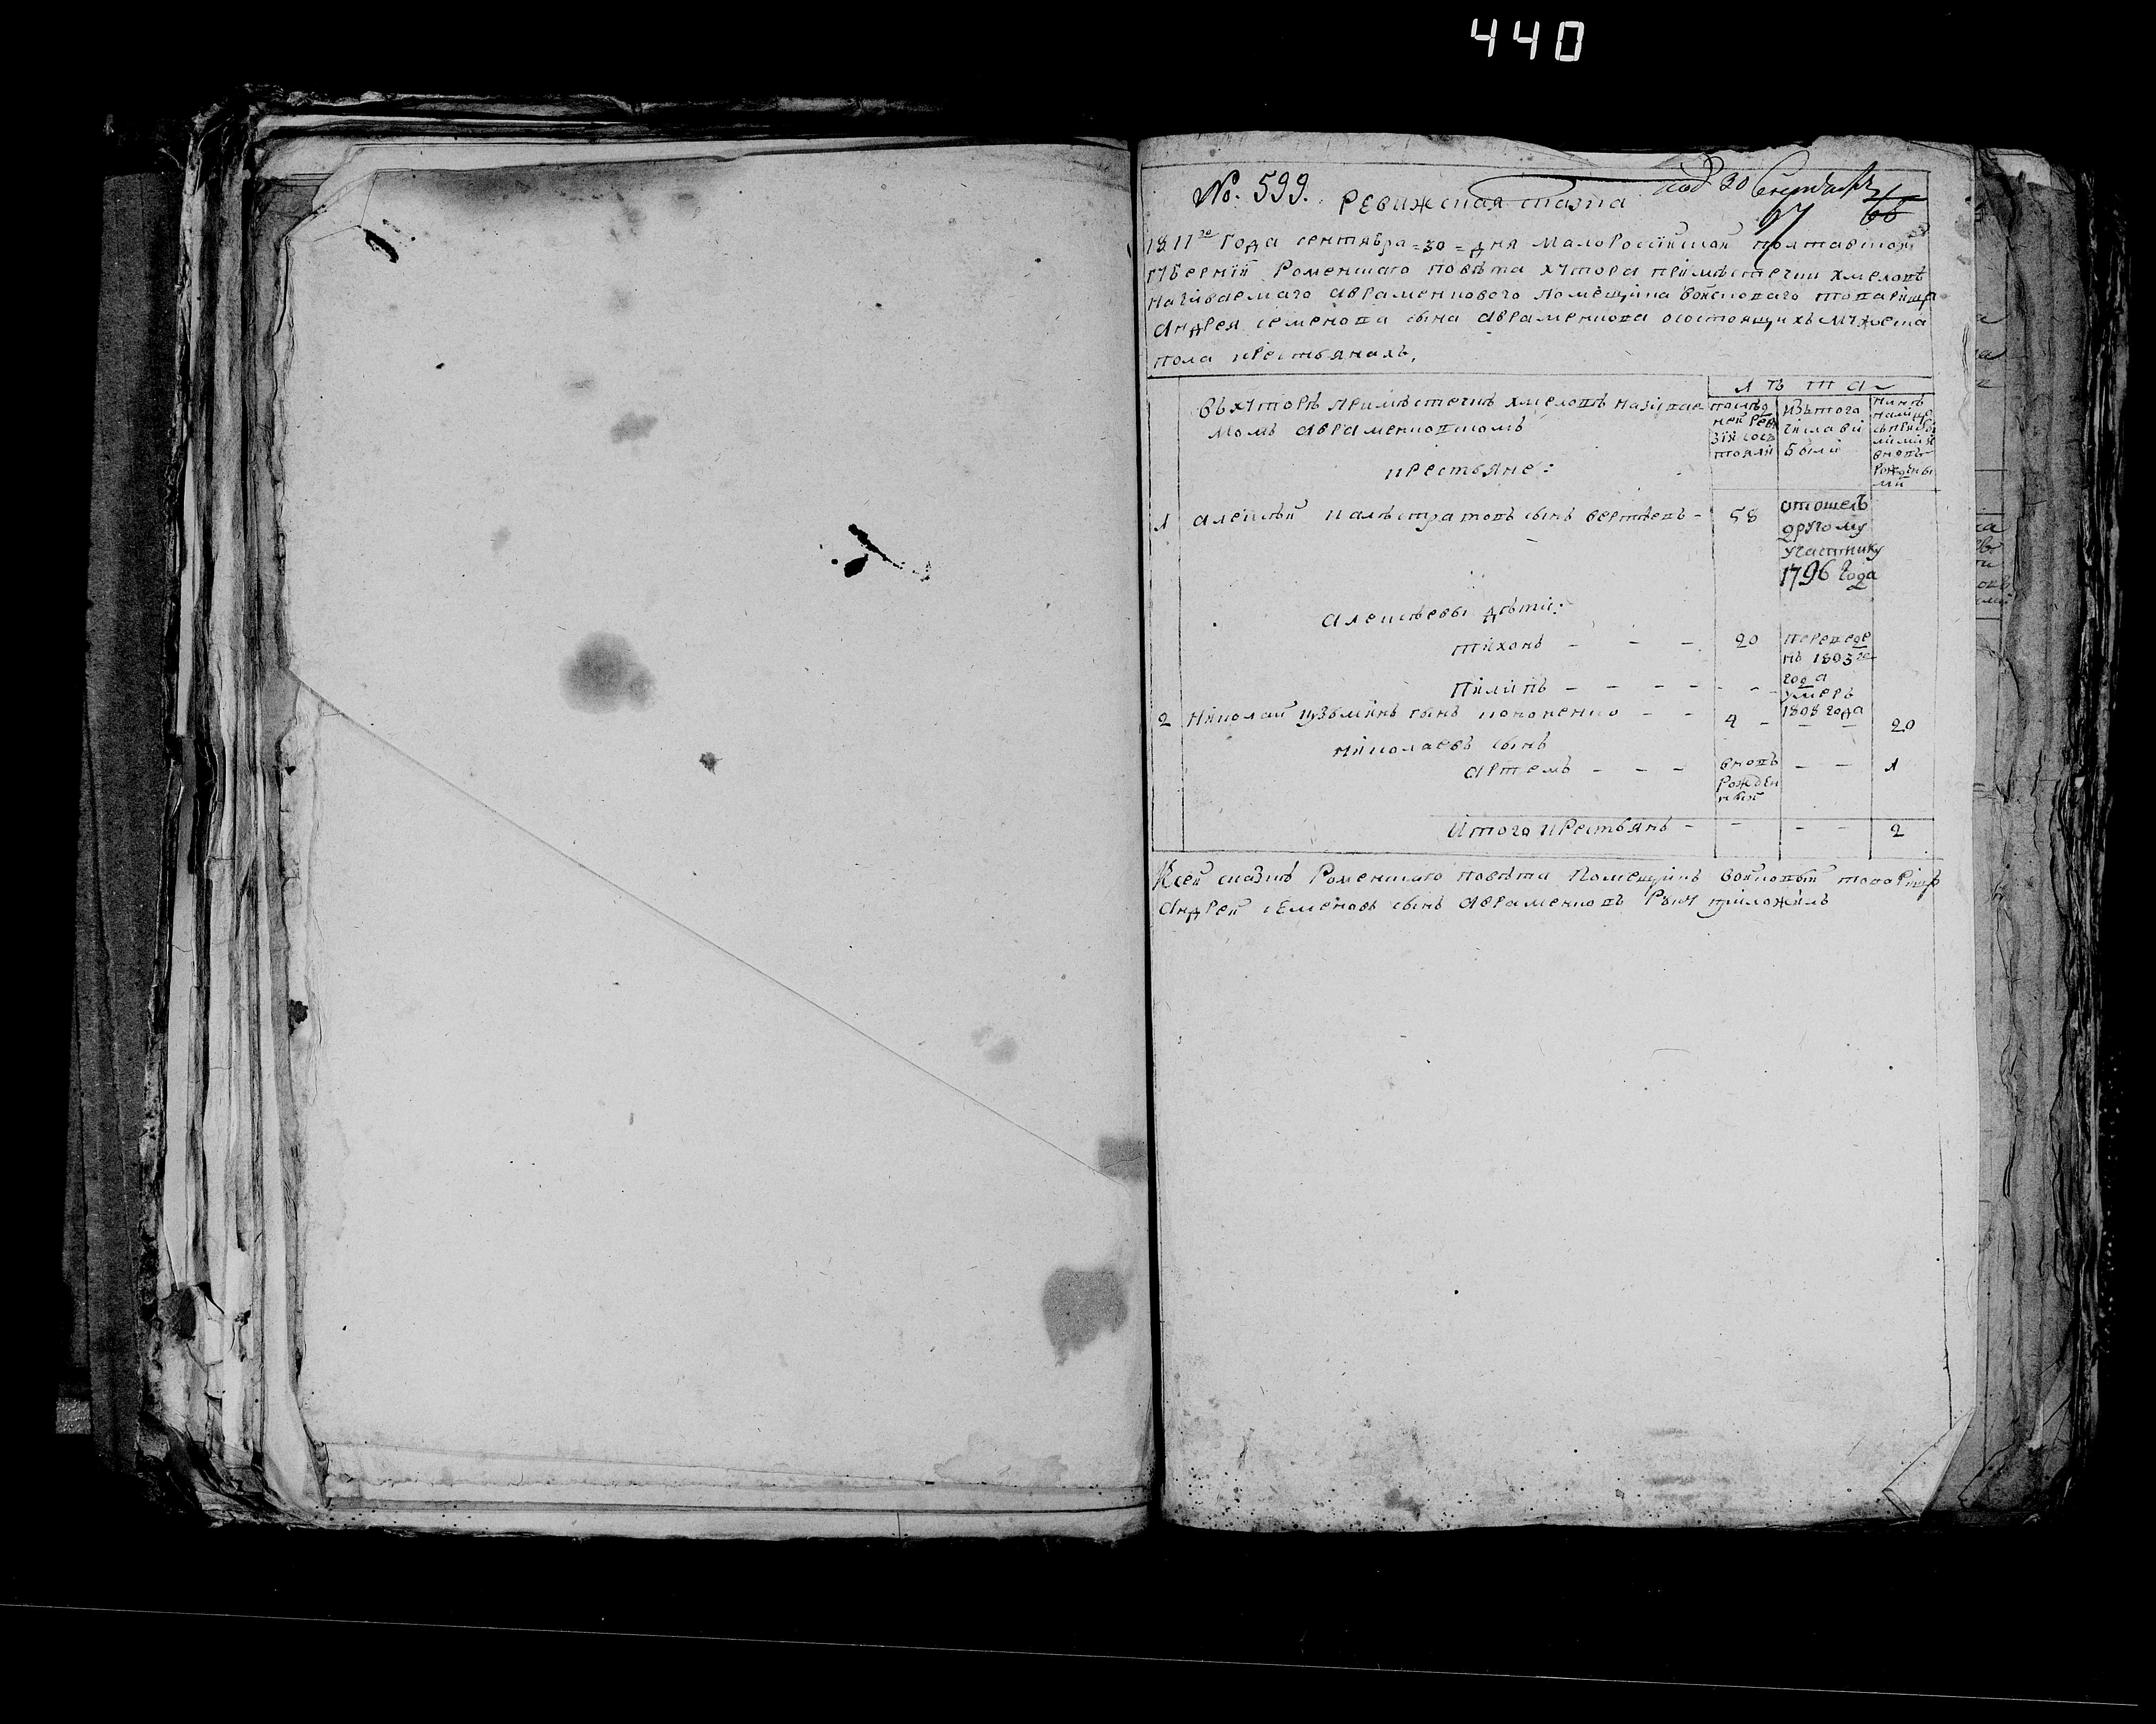 440
No. 599. Ревижская сказка под 30 Сентября
67 66
1811го Года сентября = 30 = дня Малороссійской полтавской
губерніи Роменскаго повѣта хутора прімѣстечки хмеловѣ
называемаго Авраменковаго помещика войсковаго товарища
Андрея семенова сына Авраменкова осостоящихъ мужеска
пола крестьянахъ,
Л ѣ т а
въ хуторѣ прімѣстечкѣ хмеловѣ называе
момъ Авраменковскомъ
послѣд
ней Реви
зіи сос
тояли
изътого
числа ві
были
нынѣ
налицо
вновь
рожденны
ми
крестьяне:
1 Алексѣй Калѣстратовъ сынъ вертѣевъ - 58
отошелъ
другому
участнику
1796 года
Алексѣевы дѣти:
тихонъ - - - 20 переведе
нъ 1803го
года
Пилипъ - - - - - - умеръ
1808 года
2 Николай кузьминъ сынъ кононенко - - 4 - - - 20
николаевъ сынъ
Артемъ - - - вновь - - 1
рожден
ный
Итого крестьянъ - - - - 2
Ксей сказкѣ Роменскаго повѣта Помещикъ войсковый товарищь
Андрей сЕменовъ сынъ Авраменковъ Руку приложилъ